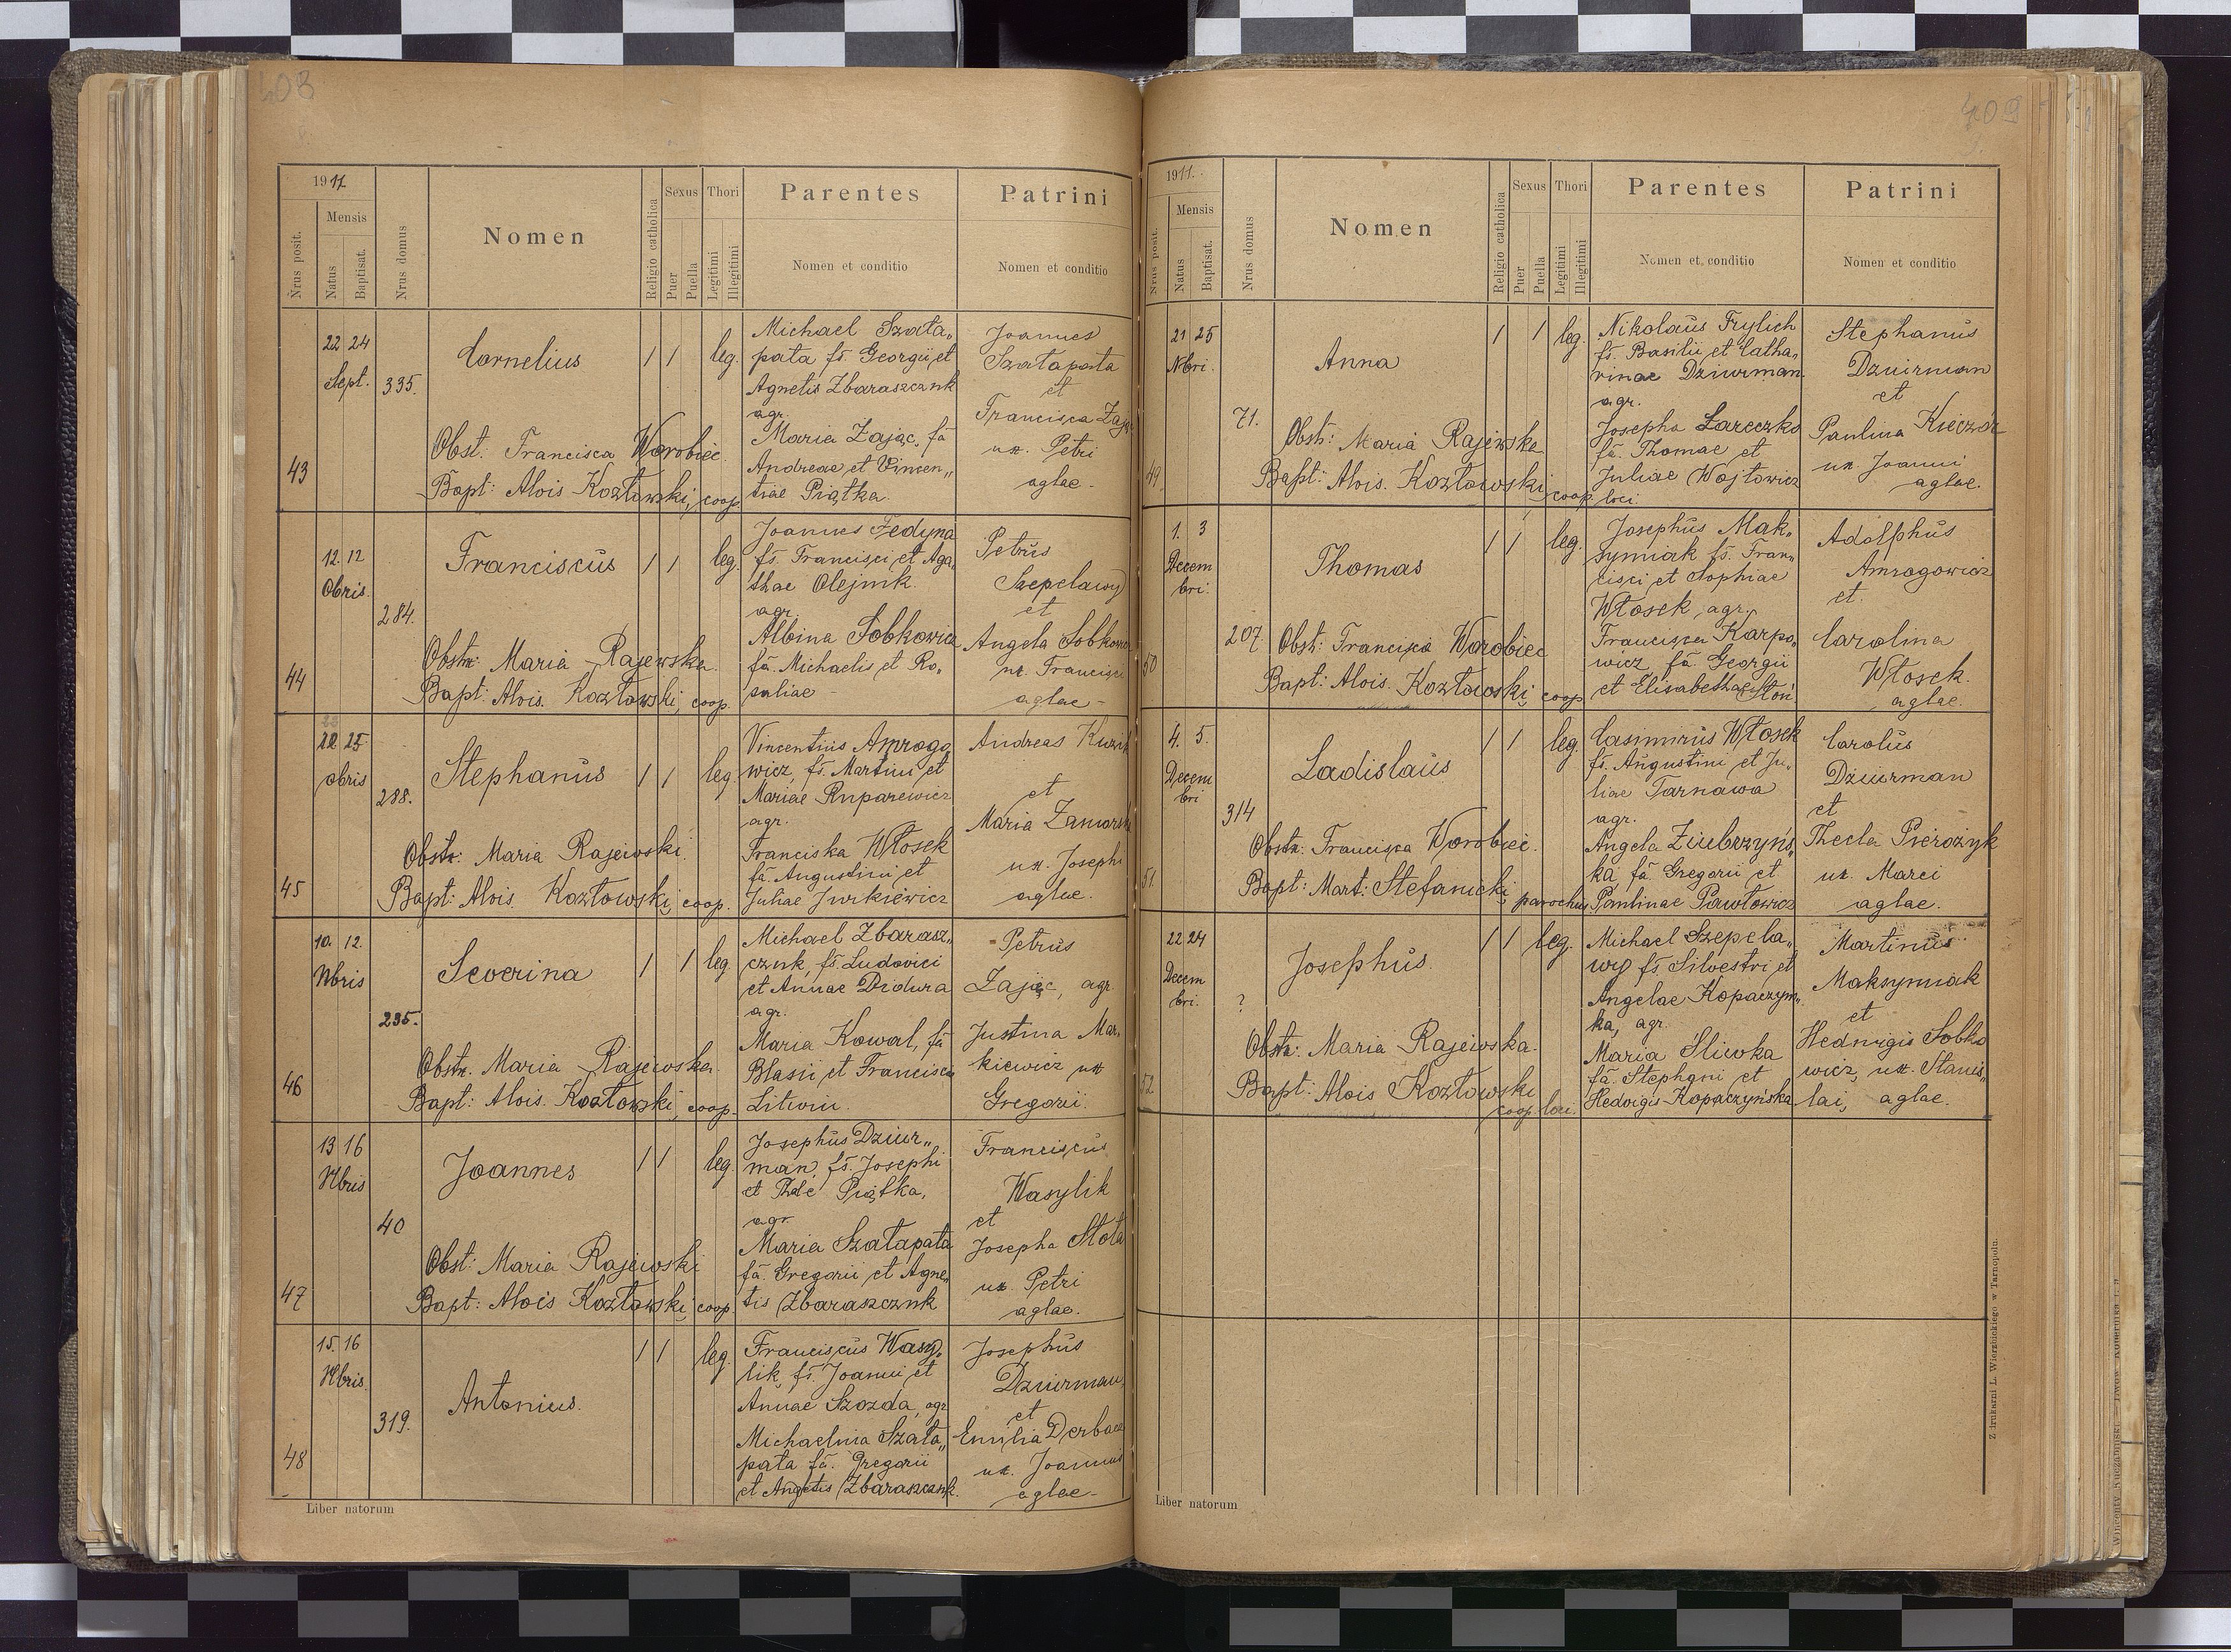 408
1911.
Mensis
Nrus posit.
Natus
Baptisat.
Nrus domus
Nomen
Religio catholica
Sexus
Puer
Puella
Thori
Legitimi
Illegitimi
Parentes
Nomen et conditio
Patrini
Nomen et conditio
43
22 24
Sept.
335.
Cornelius
1 1 leg.
Obst. Francisca Worobiec
Bapt: Alois Kozłowski, coop.
Michael Szała„
pata fs. Georgii et
Agnetis Zbaraszczuk
agr.
Maria Zając, fa
Andreae et Vincen„
tiae Piątka.
Joannes
Szałapata
et
Francisca Zając
ux. Petri
aglae.
44
12. 12
Obris.
284.
Franciscus
1 1 leg.
Obstr: Maria Rajewska
Bapt: Alois. Kozłowski, coop.
Joannes Fedyna
fs. Francisci et Aga„
thae Olejnik.
agr.
Albina Sobkowicz
fa. Michaelis et Ro„
saliae -
Petrus
Szepelawy
et
Angela Sobkow
ux. Francisci
aglae -
45
22 25
obris
288.
Stephanus
1 1 leg.
Obstr: Maria Rajewski
Bapt: Alois. Kozłowski, coop.
Vincentius Amrogo
wicz, fs. Martini et
Mariae Ruparewicz
agr.
Franciska Włosek
fa. Augustini et
Juliae Jurkiewicz
Andreas
et
Maria
ux. Josephi
aglae.
46
10. 12.
Nbris
235.
Severina
1 1 leg.
Obstr. Maria Rajewska
Bapt: Alois. Kozłowski, coop.
Michael Zbarasz„
czuk, fs. Ludovici
et Annae Didura
agr.
Maria Kowal, fa
Blasii et Francisca
Litwin.
Petrus
Zając, agr
Justina Mar„
kiewicz ux
Gregorii.
47
13 16
Nbris
40
Joannes
1 1 leg.
Obst: Maria Rajewski
Bapt: Alois Kozłowski, coop.
Josephus Dziur„
man, fs. Josephi
et Piątka,
agr.
Maria Szałapata
fa. Gregorii et Agne„
tis Zbaraszczuk
Franciscus
Wasylik
et
Josepha Słota
ux. Petri
aglae.
48
15. 16
Nbris.
319.
Antonius.
1 1 leg.
Franciscus Wasy„
lik, fs. Joanni et
Annae Szozda, agr
Michaelina Szała„
pata fa. Gregorii
et Angetis Zbaraszczuk.
Josephus
Dziurman,
et
Emilia
ux. Joannis
aglae -
Liber natorum
409
1911.
Mensis
Nrus posit.
Natus
Baptisat.
Nrus domus
Nomen
Religio catholica
Sexus
Puer
Puella
Thori
Legitimi
Illegitimi
Parentes
Nomen et conditio
Patrini
Nomen et conditio
49
21 25
Nbri.
71.
Anna
1 1 leg.
Obstr: Maria Rajewska
Bapt: Alois. Kozłowski, coop. loci.
Nikolaus Frylich
fs. Basilii et Catha„
rinae Dziurman.
agr.
Josepha Łareczko
fa. Thomae et
Juliae Wojtowicz
Stephanus
Dziurman
et
Paulina Kieczór
ux. Joanni
aglae.
50
1. 3
Decem
bri.
207.
Thomas
1 1 leg.
Obstr: Francisca Worobiec
Bapt: Alois. Kozłowski, coop.
Josephus Mak„
symiak fs. Fran„
cisci et Sophiae
Włosek, agr.
Francisca Karpo„
wicz, fa. Georgii
et Elisabethae Słoń.
Adolphus
Amrogowicz
et.
Carolina
Włosek.
aglae.
51.
4. 5.
Decem
bri
314
Ladislaus
1 1 leg.
Obstr: Francisca Worobiec.
Bapt: Mart: Stefanicki, parochus
Casimirus Włosek
fs. Augustini et Ju„
liae Tarnawa
agr.
Angela Ziubrzyńs„
ka fa. Gregorii et
Paulinae Pawłowicz
Carolus
Dziurman
et
Thecla Pierożyk
ux. Marci
aglae.
52
22 24
Decem
bri.
?
Josephus.
1 1 leg.
Obstr: Maria Rajewska.
Bapt: Alois Kozłowski
coop. loci.
Michael Szepela„
wy fs. Silvestri et
Angelae Kopaczyńs„
ka, agr.
Maria Sliwka
fa. Stephani et
Hedvigis Kopaczyńska
Martinus
Maksymiak
et
Hedvigis Sobko
wicz, ux. Stanis„
lai, aglae.
Liber natorum
Z drukarni L. Wierzbickiego w Tarnopolu.